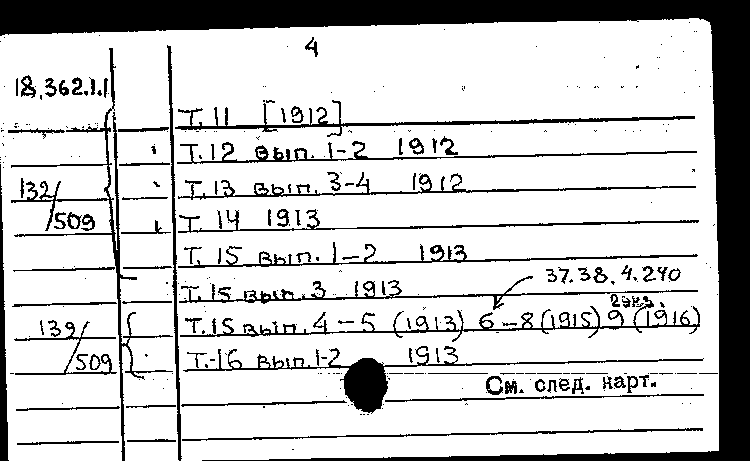 4
18.362.1.1
Т. 11 [1912]
Т. 12 вып. 1-2 1912
Т. 13 вып. 3-4 1912
132/509
Т. 14 1913
Т. 15 вып. 1-2 1913
37.38.4.240
Т. 15 вып. 3 1913
2 экз.
139/509
Т. 15 вып. 4-5 (1913) 6-8 (1915) 9 (1916)
Т. 16 вып. 1-2 1913
См. след. карт.